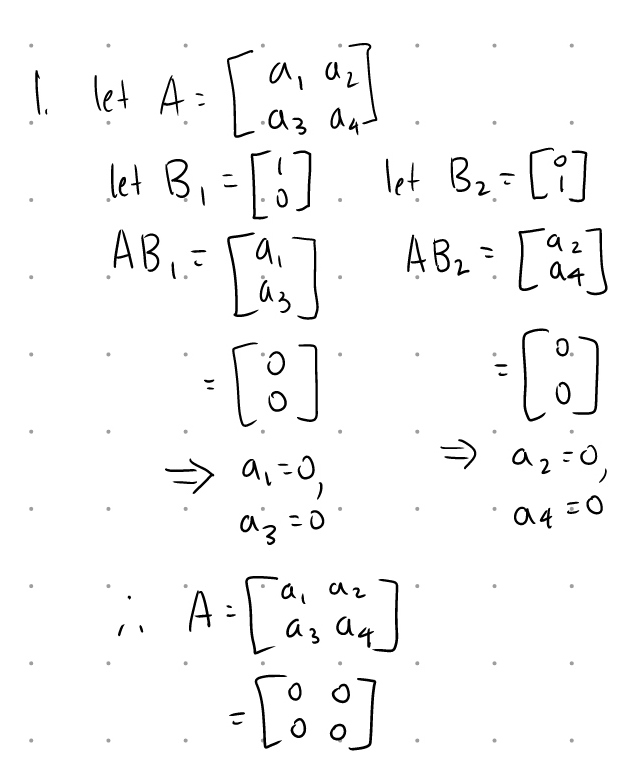 1. let A = [a₁ a₂
a₃ a₄]
let B₁ = [1
0] let B₂ = [0
1]
AB₁ = [a₁
a₃] AB₂ = [a₂
a₄]
= [0
0] = [0
0]
⇒ a₁=0, ⇒ a₂=0,
a₃=0 a₄=0
∴ A = [a₁ a₂
a₃ a₄]
= [0 0
0 0]